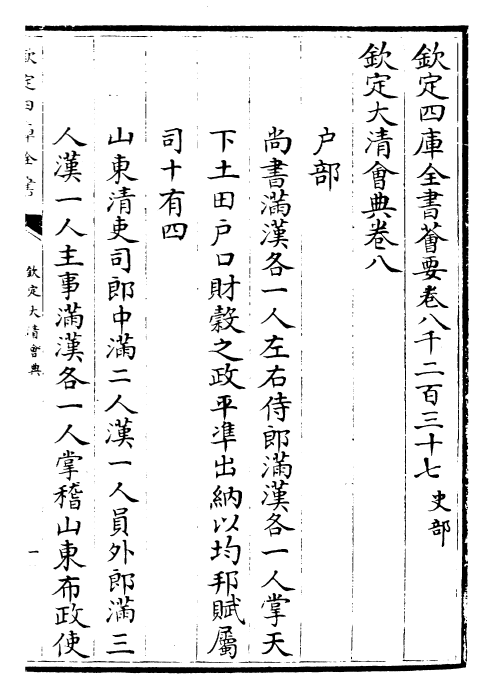 欽定四庫全書薈要卷八千二百三十七 史部
欽定大清會典卷八
户部
尚書滿漢各一人左右侍郎滿漢各一人掌天
下土田户口財糓之政平準出納以均邦賦屬
司十有四
山東清吏司郎中滿二人漢一人員外郎滿三
人漢一人主事滿漢各一人掌稽山東布政使
欽定四庫全書
欽定大清會典
一